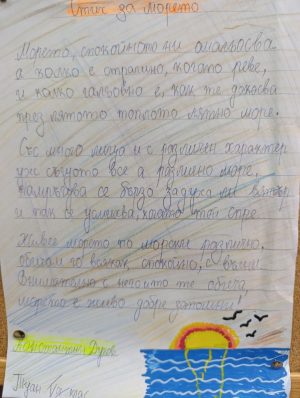 Стих за морето
Морето, спокойното ни омайва
а колко е страшно, когато реве,
и колко гальовно е, как те докосва
през лятото топлото лятно море.
Със много лица и с различен характер
уж същото все а различно море,
намръщва се бързо задуха ли вятър
и пак се усмихва, когато той спре.
Живее морето по морски различно,
обичам го всякак, спокойно, с вълни
Внимателно с него
морето е живо добре запомни!
Константин